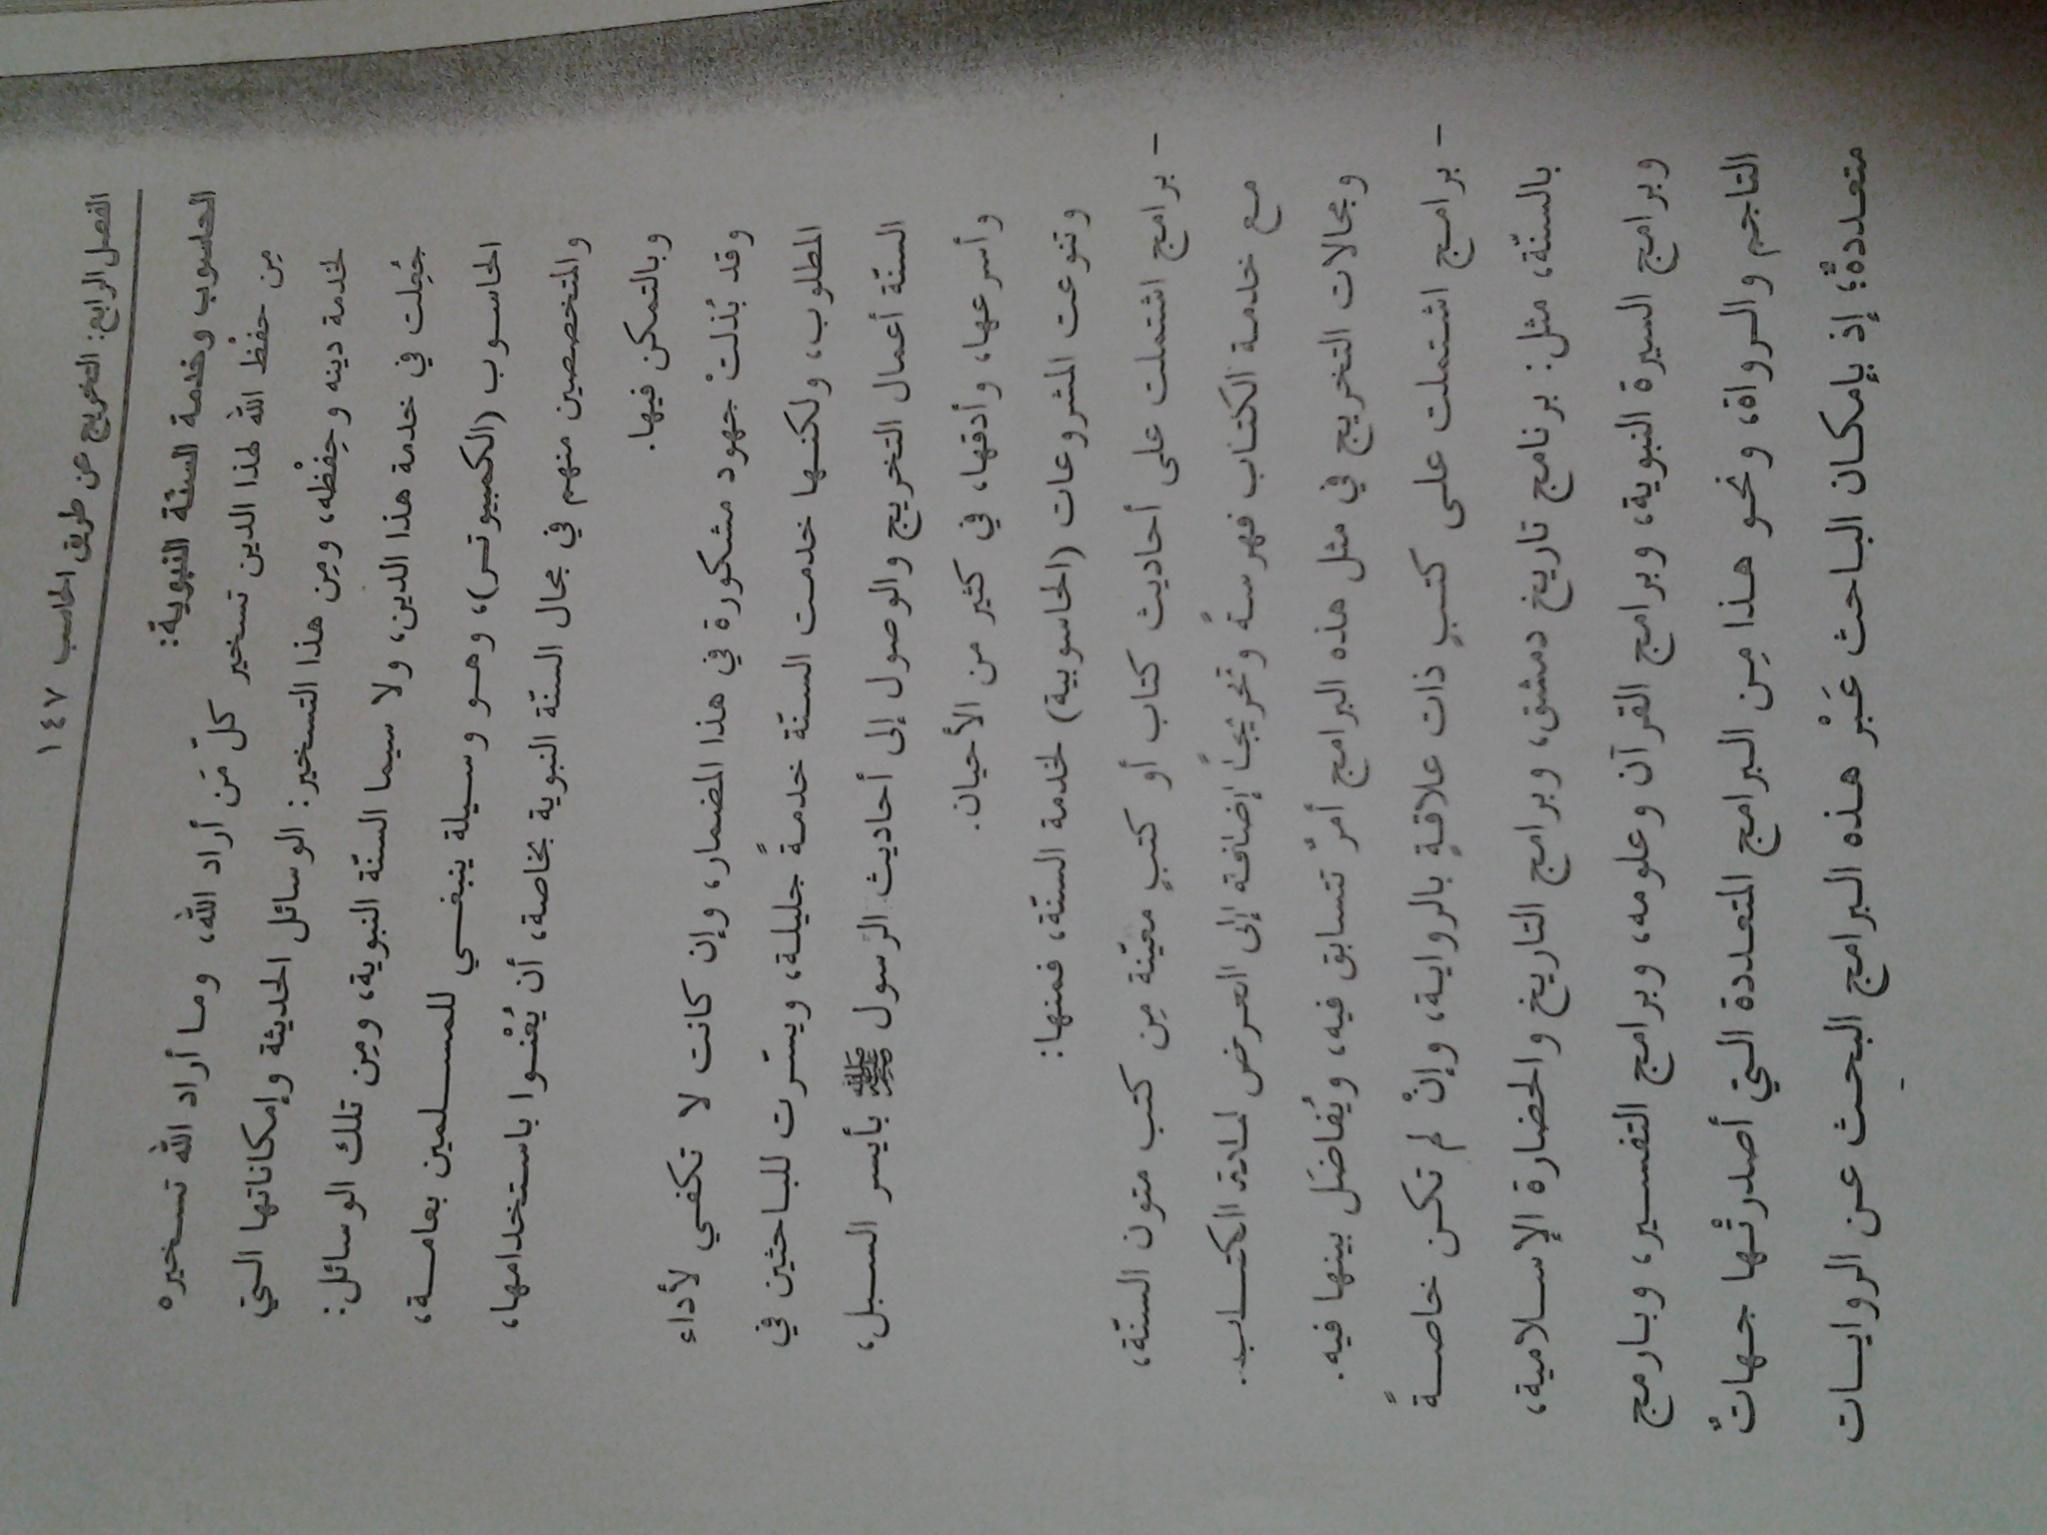 الفصل الرابع: التخريج عن طريق الحاسب ١٤٧
الحاسوب وخدمة السنّة النبوية:
مِن حفْظ الله لهذا الدين تسخير كلّ مَن أراد الله، وما أراد الله تسخيرهْ
لخدمة دينه وحِفْظه، ومِن هذا التسخير: الوسائل الحديثة وإمكاناتها التي
جُعِلت في خدمة هذا الدين، ولا سيما السنّة النبوية، ومِن تلك الوسائل:
الحاسوب (الكمبيوتر)، وهو وسيلة ينبغي للمسلمين بعامة،
والمتخصصين منهم في مجال السنّة النبوية بخاصة، أن يُعْنوا باستخدامها،
وبالتمكن فيها.
وقد بُذلتْ جهود مشكورة في هذا المضمار، وإن كانت لا تكفي لأداء
المطلوب، ولكنها خدمت السنّة خدمةً جليلة، ويسّرت للباحثين في
السنّة أعمال التخريج والوصول إلى أحاديث الرّسول ﷺ بأيسر السبل،
وأسرعها، وأدقها، في كثير من الأحيان.
وتنوعت المشروعات (الحاسوبية) لخدمة السنّة، فمنها:
- برامج اشتملت على أحاديث كتاب أو كتبٍ معيّنة مِن كتب متون السنّة،
مع خدمة الكتاب فهرسةً وتخريجاً إضافة إلى العرض لمادة الكتاب.
ومجالات التخريج في مثل هذه البرامج أمرٌ تتسابق فيه، ويُفاضَل بينها فيه.
- برامج اشتملت على كتبٍ ذات علاقةٍ بالرواية، وإنْ لم تكن خاصةً
بالسنّة، مثل: برنامج تاريخ دمشق، وبرامج التاريخ والحضارة الإسلامية،
وبرامج السيرة النبوية، وبرامج القرآن وعلومه، وبرامج التفسير، وبارمج
التاجم والرواة، ونحو هذا مِن البرامج المتعددة التي أصدرتْها جهاتٌ
متعددةٌ؛ إذ بإمكان الباحث عَبْر هذه البرامج البحث عن الروايات